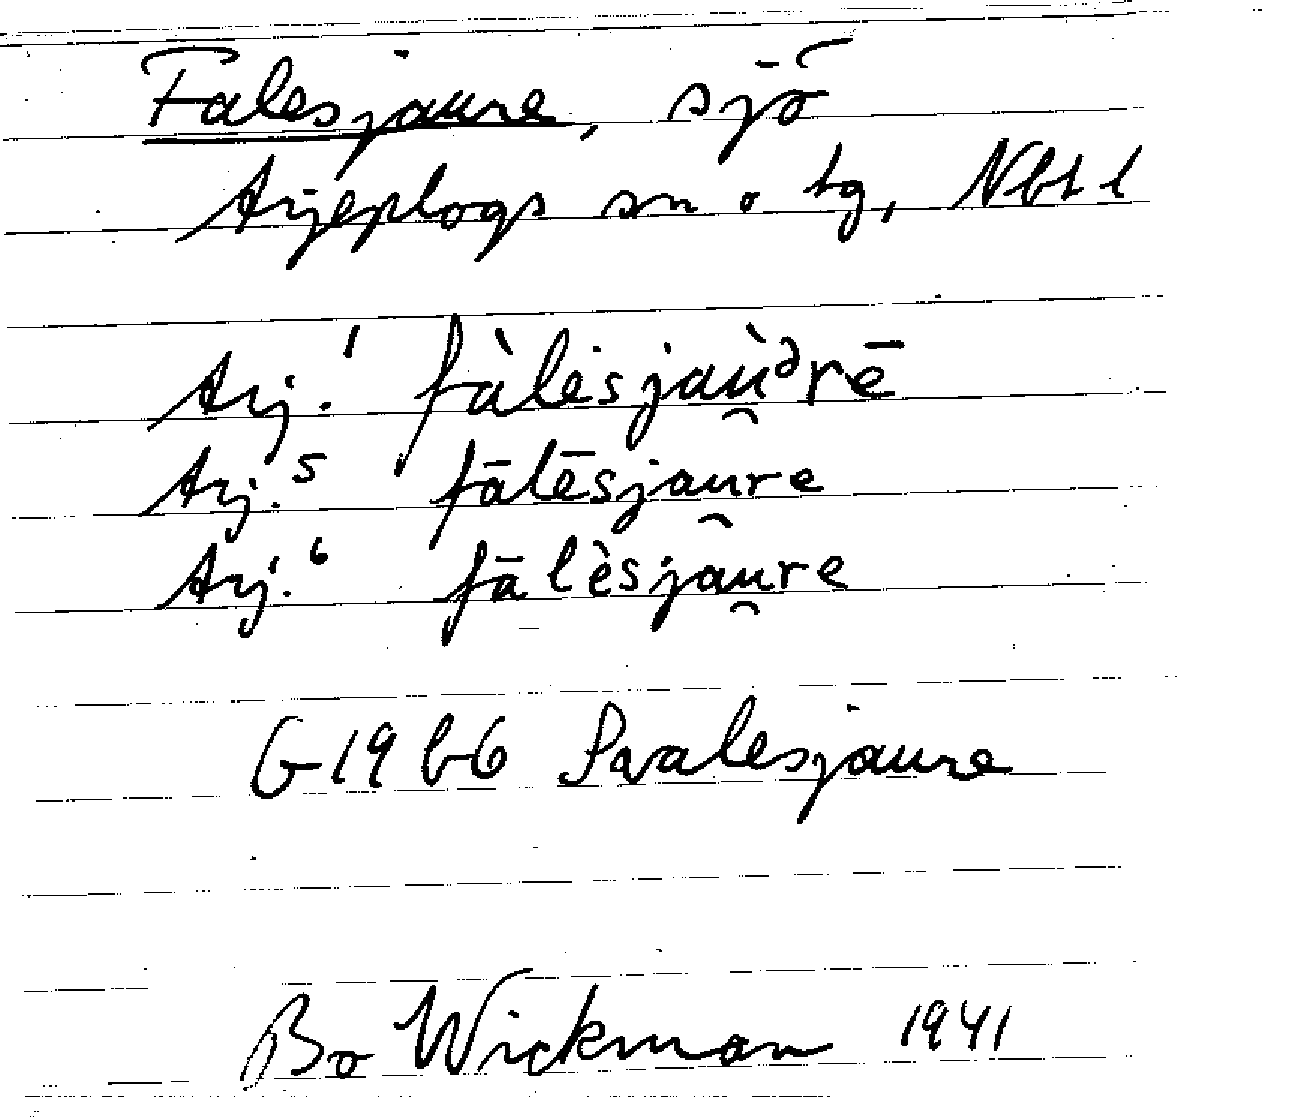 Falesjaure, sjö
Arjeplogs sn o tg, Nbt l
Arj.¹ fàlėsjaù̯ᵊrē
Arj.⁵ fālēsjau̯re
Arj.⁶ fālèsjau̯re
G 19 b6 Svalesjaure
Bo Wickman 1941